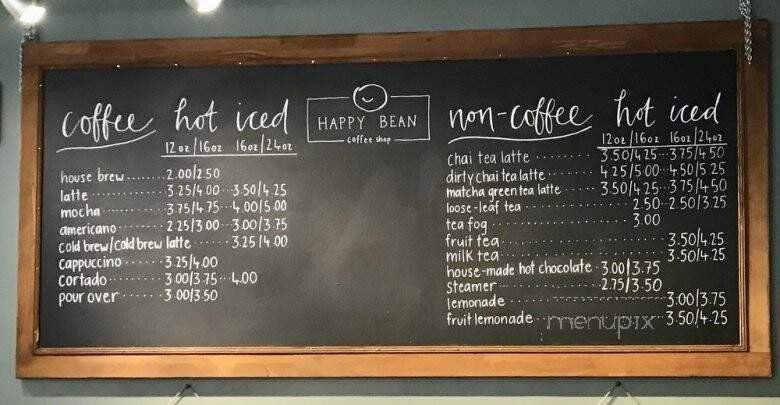 coffee hot iced
12oz/16oz 16oz/24oz
house brew 2.00/2.50
latte 3.25/4.00 3.50/4.25
mocha 3.75/4.75 4.00/5.00
americano 2.25/3.00 3.00/3.75
cold brew/cold brew latte 3.25/4.00
cappuccino 3.25/4.00
cortado 3.00/3.75 4.00
pour over 3.00/3.50
HAPPY BEAN
coffee shop
non-coffee hot iced
12oz/16oz 16oz/24oz
chai tea latte 3.50/4.25 3.75/4.50
dirty chai tea latte 4.25/5.00 4.50/5.25
matcha green tea latte 3.50/4.25 3.75/4.50
loose-leaf tea 2.50 2.50/3.25
tea fog 3.00
fruit tea 3.50/4.25
milk tea 3.50/4.25
house-made hot chocolate 3.00/3.75
steamer 2.75/3.50
lemonade 3.00/3.75
fruit lemonade 3.50/4.25
menupix